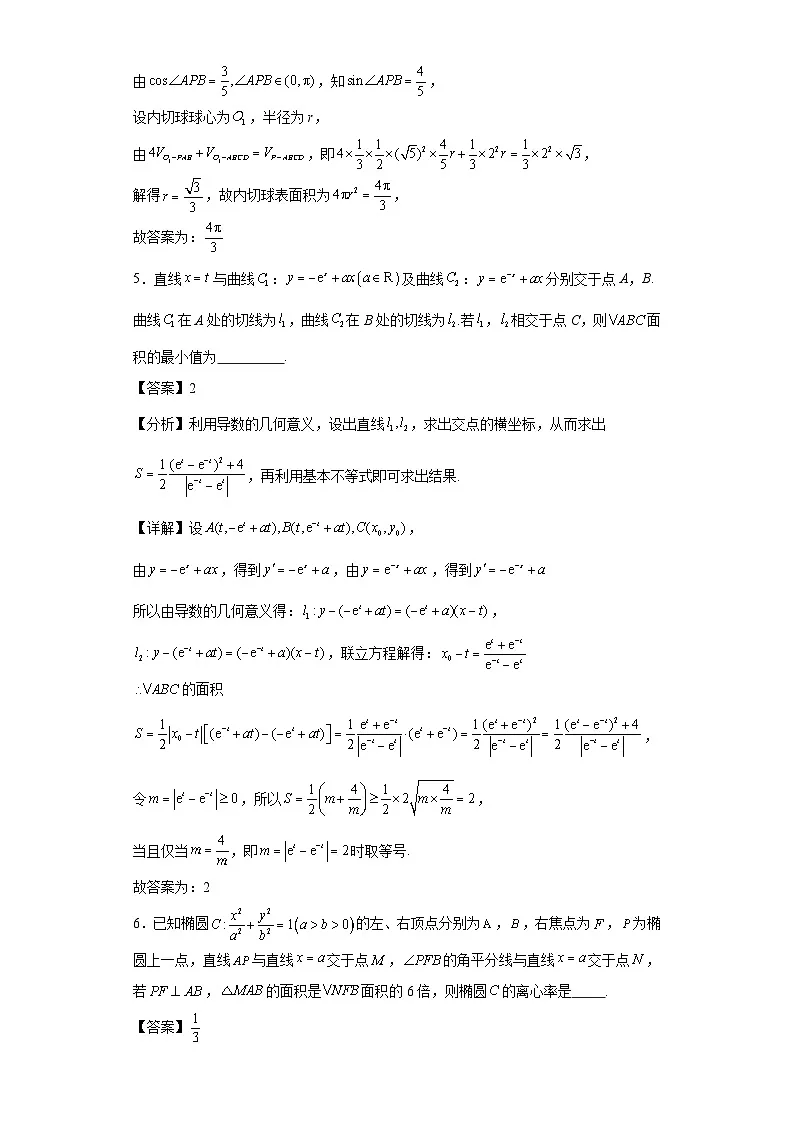 由cos∠APB=3/5,∠APB∈(0,π),知sin∠APB=4/5,
设内切球球心为O₁,半径为r,
由4V_{O₁-PAB}+V_{O₁-ABCD}=V_{P-ABCD},即4×1/3×1/2×(√5)²×4/5 r+1/3×2²r=1/3×2²×√3,
解得r=√3/3,故内切球表面积为4πr²=4π/3,
故答案为:4π/3
5.直线x=t与曲线C₁:y=-eˣ+ax(a∈R)及曲线C₂:y=e⁻ˣ+ax分别交于点A,B.
曲线C₁在A处的切线为l₁,曲线C₂在B处的切线为l₂.若l₁,l₂相交于点C,则VABC面
积的最小值为__________.
【答案】2
【分析】利用导数的几何意义,设出直线l₁,l₂,求出交点的横坐标,从而求出
S=1/2 ((eᵗ-e⁻ᵗ)²+4)/|e⁻ᵗ-eᵗ|,再利用基本不等式即可求出结果.
【详解】设A(t,-eᵗ+at),B(t,e⁻ᵗ+at),C(x₀,y₀),
由y=-eˣ+ax,得到y′=-eˣ+a,由y=e⁻ˣ+ax,得到y′=-e⁻ˣ+a
所以由导数的几何意义得:l₁:y-(-eᵗ+at)=(-eᵗ+a)(x-t),
l₂:y-(e⁻ᵗ+at)=(-e⁻ᵗ+a)(x-t),联立方程解得:x₀-t=(eᵗ+e⁻ᵗ)/(e⁻ᵗ-eᵗ)
∴VABC的面积
S=1/2|x₀-t|[(e⁻ᵗ+at)-(-eᵗ+at)]=1/2 (eᵗ+e⁻ᵗ)/|e⁻ᵗ-eᵗ|·(eᵗ+e⁻ᵗ)=1/2 (eᵗ+e⁻ᵗ)²/|e⁻ᵗ-eᵗ|=1/2 ((eᵗ-e⁻ᵗ)²+4)/|e⁻ᵗ-eᵗ|,
令m=|eᵗ-e⁻ᵗ|≥0,所以S=1/2(m+4/m)≥1/2×2√(m×4/m)=2,
当且仅当m=4/m,即m=|eᵗ-e⁻ᵗ|=2时取等号.
故答案为:2
6.已知椭圆C:x²/a²+y²/b²=1(a>b>0)的左、右顶点分别为A,B,右焦点为F,P为椭
圆上一点,直线AP与直线x=a交于点M,∠PFB的角平分线与直线x=a交于点N,
若PF⊥AB,△MAB的面积是VNFB面积的6倍,则椭圆C的离心率是_____.
【答案】1/3